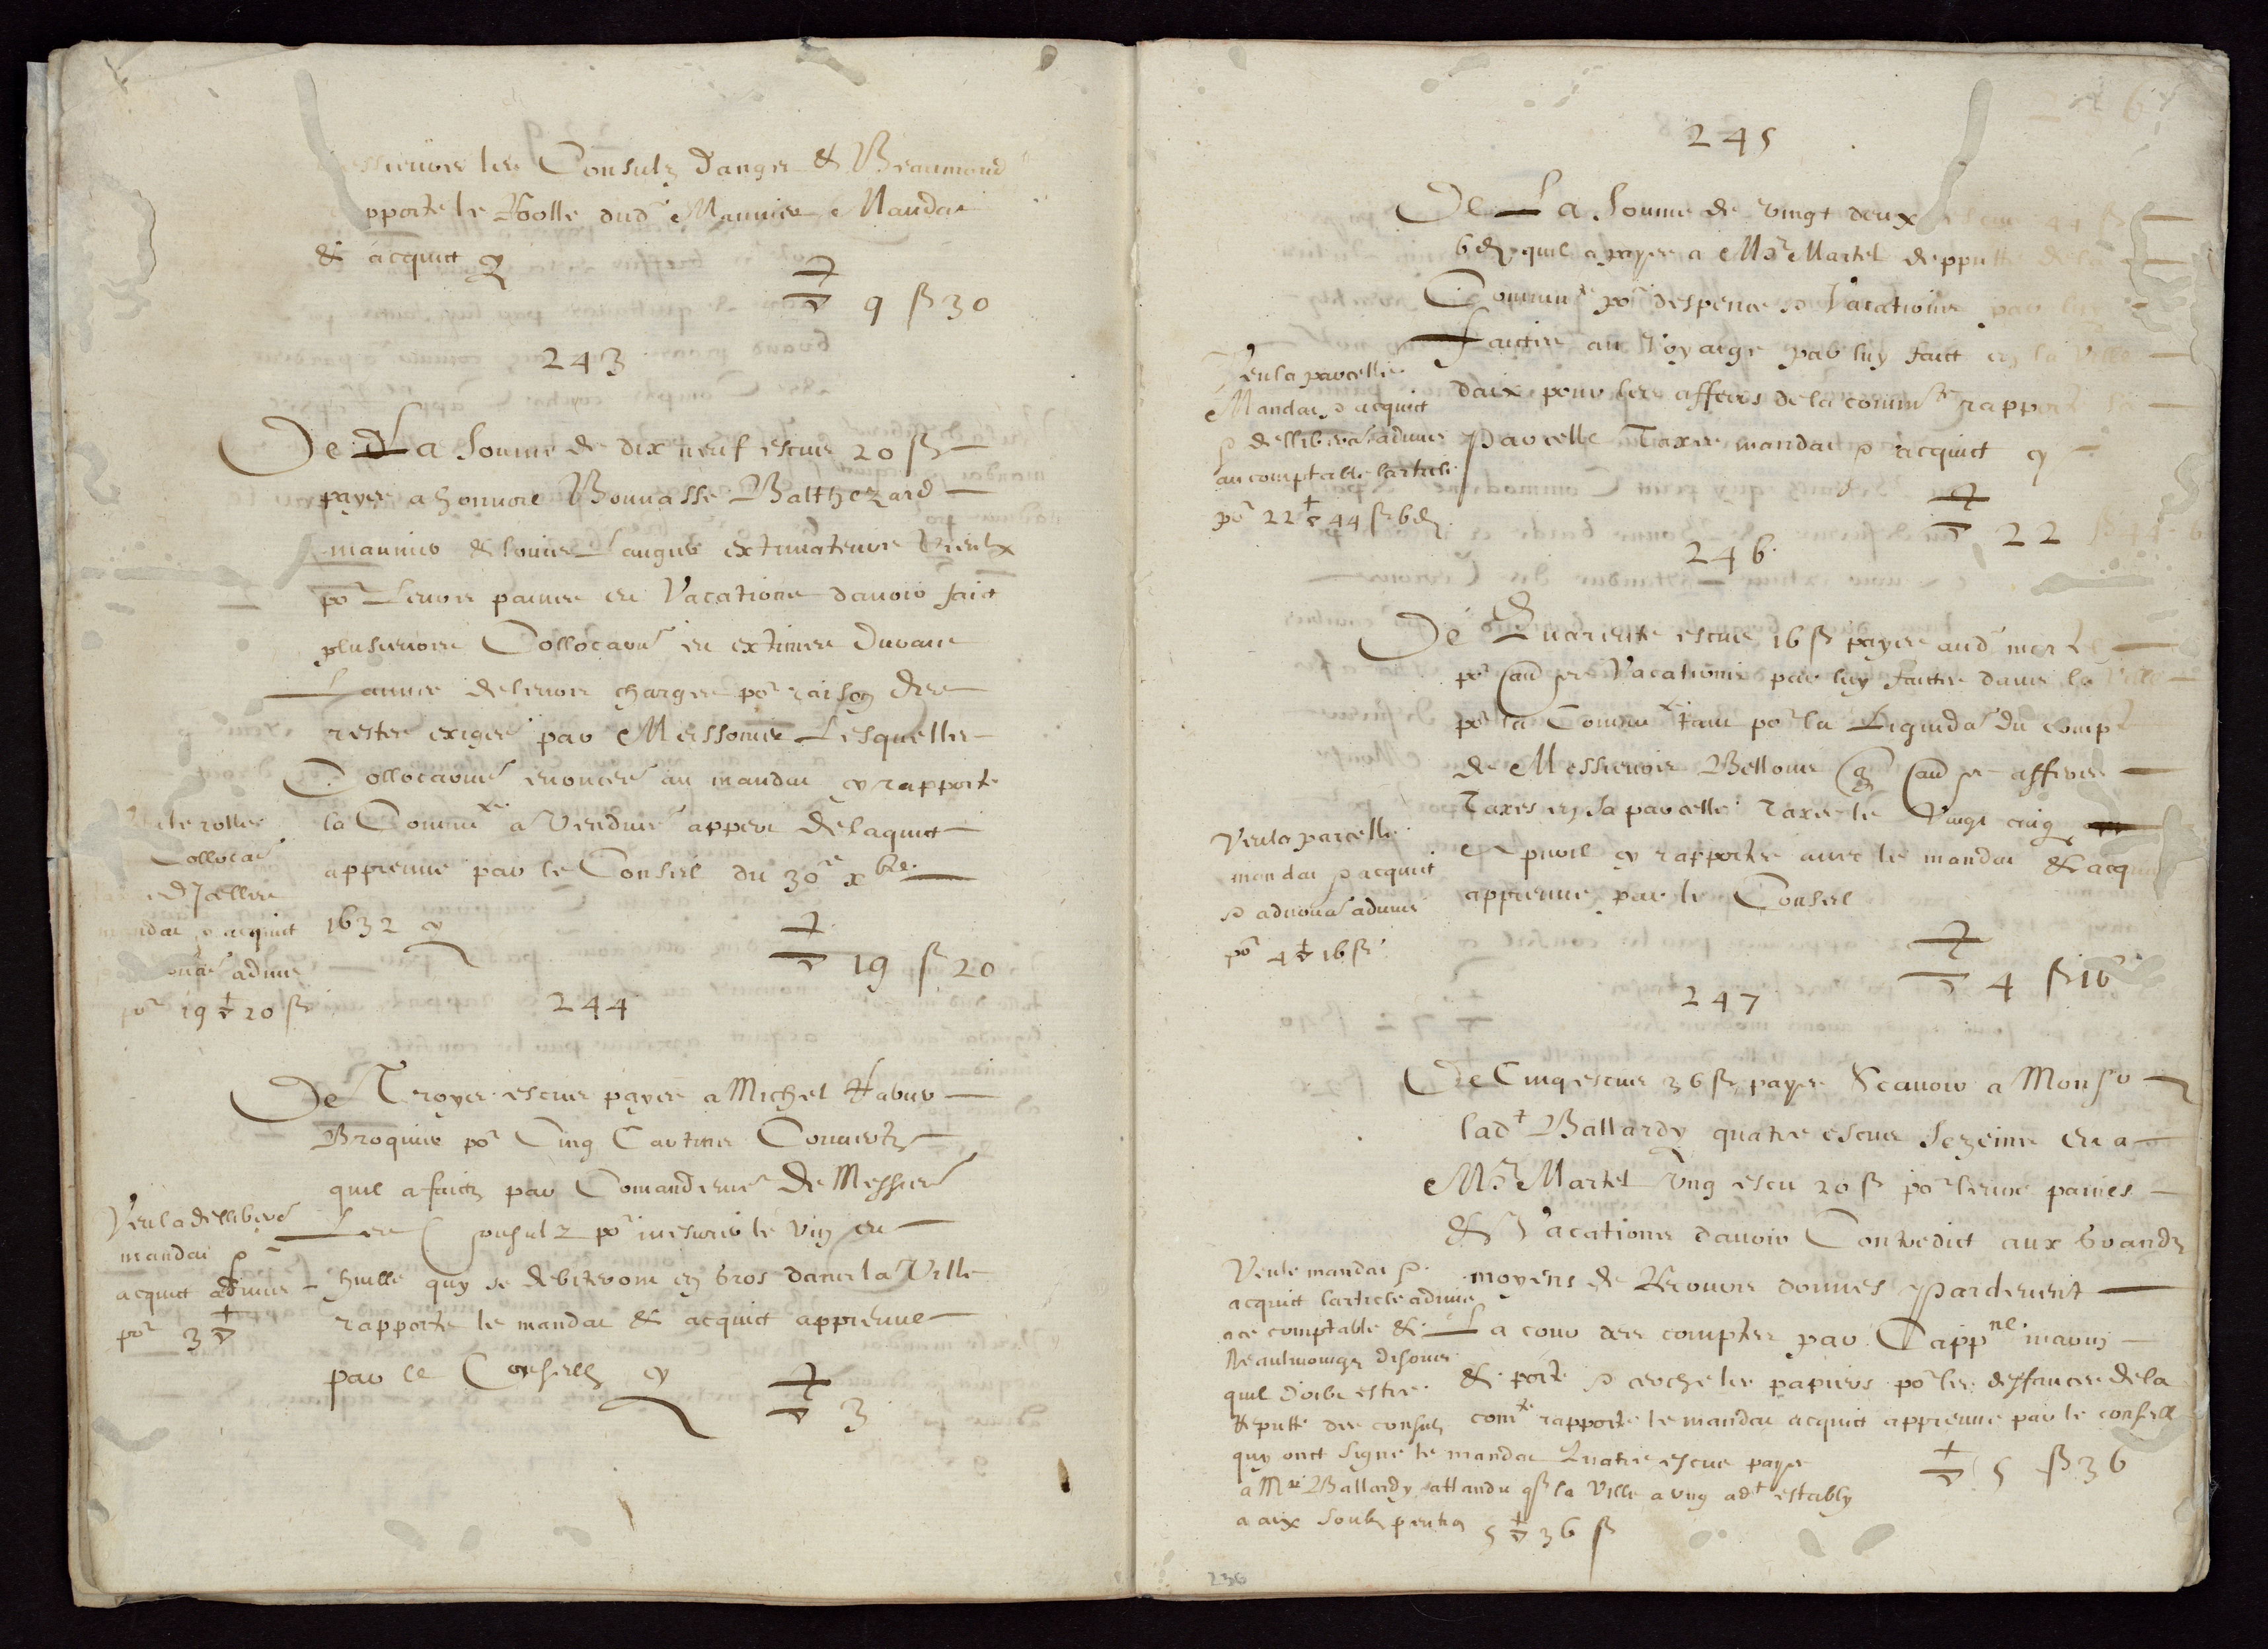 les Consulz danger & Beaumond
pporte le Rolle dud Meunier Mandat
& acquict cy
9 ß 30
243
De La Somme de dix neuf escus 20 ß
payes a honnore Bonnasse Balthezard
maunier & louis Laugier extimateurs vieulx
po.r Leurs paines et Vacations davoir faict
plusieurs Collocaõns et extimes Durant
Lannee de leurs charges po.r raison des
restes exiges par Meissonier Lesquelles
Collocaõns enoncés au mandat cy rapporté
la Commu.te a Vendues appert de laquict
appreuve par le Conseil du 30e xbre
1632 cy
19 ß 20
rolle
Collocaõn
mandat & acquict
admis
po.r 19 20 ß
244
De Troys escus payes a Michel Habur
Broquier po.r Cinq Cartins Couverts
quil a faictz par Comandement De Messieurs
Les Consulz po.r mesurer le vin et
huille quy se debiteront en Gros dans la Ville
rapporte le mandat & acquict appreuve
par le Conseilh cy
3
Veu la dellibera.on
mandat &
acquict admis
po.r 3
245
De La Somme de vingt deux escus 44 ß
6 d quil a payes a Mr Martel depputté de la
Commu.te po.r despence & Vacations par luy
faictes au Voyaige par luy faict en la Ville
daix pour les affères de la commu.te rapporte
parcelle Taxée mandat & acquict cy
22 ß 44 6
Veu la parcelle
Mandat & acquict
& dellibera.on admis
au comptable larticle
po.r 22 44 ß 6 d
246
De Quatre escus 16 ß payes aud martel
po.r Vacations par luy faictes dans la Ville
po.r la Commu.te tant po.r la Liquida.on du compte
de Messieurs Bellons affaires
Taxes en sa parcelle Taxée le Vingt cinq
apvril cy rapportée avec le mandat & acquict
appreuve par le Conseil
4 ß 16
Veu la parcelle
mandat & acquict
& advoua.on admis
po.r 4 16 ß
247
De Cinq escus 36 ß payes Scavoir a Monsr
lad.t Ballardy quatre escus sezeine et a
Mr. Martel Ung escu 20 ß po.r leurs paines
& Vacations davoir Contredict aux Grandz
moyens de Recours donnés pardevent
La cour des comptes par Capp.ne maurin
& porté & cerché les papiers po.r les deffances de la
com.te rapporte le mandat acquict appreuve par le conseil
5 ß 36
Veu le mandat &
acquict larticle admis
a ce comptable &
Neaulmoings disons
quil doibt estre
repetté des consulz
quy ont signé le mandat Quatre escus payes
a Mr Ballardy attandu qe la Ville a ung ad.t estably
a aix soubz pention 5 36 ß
236